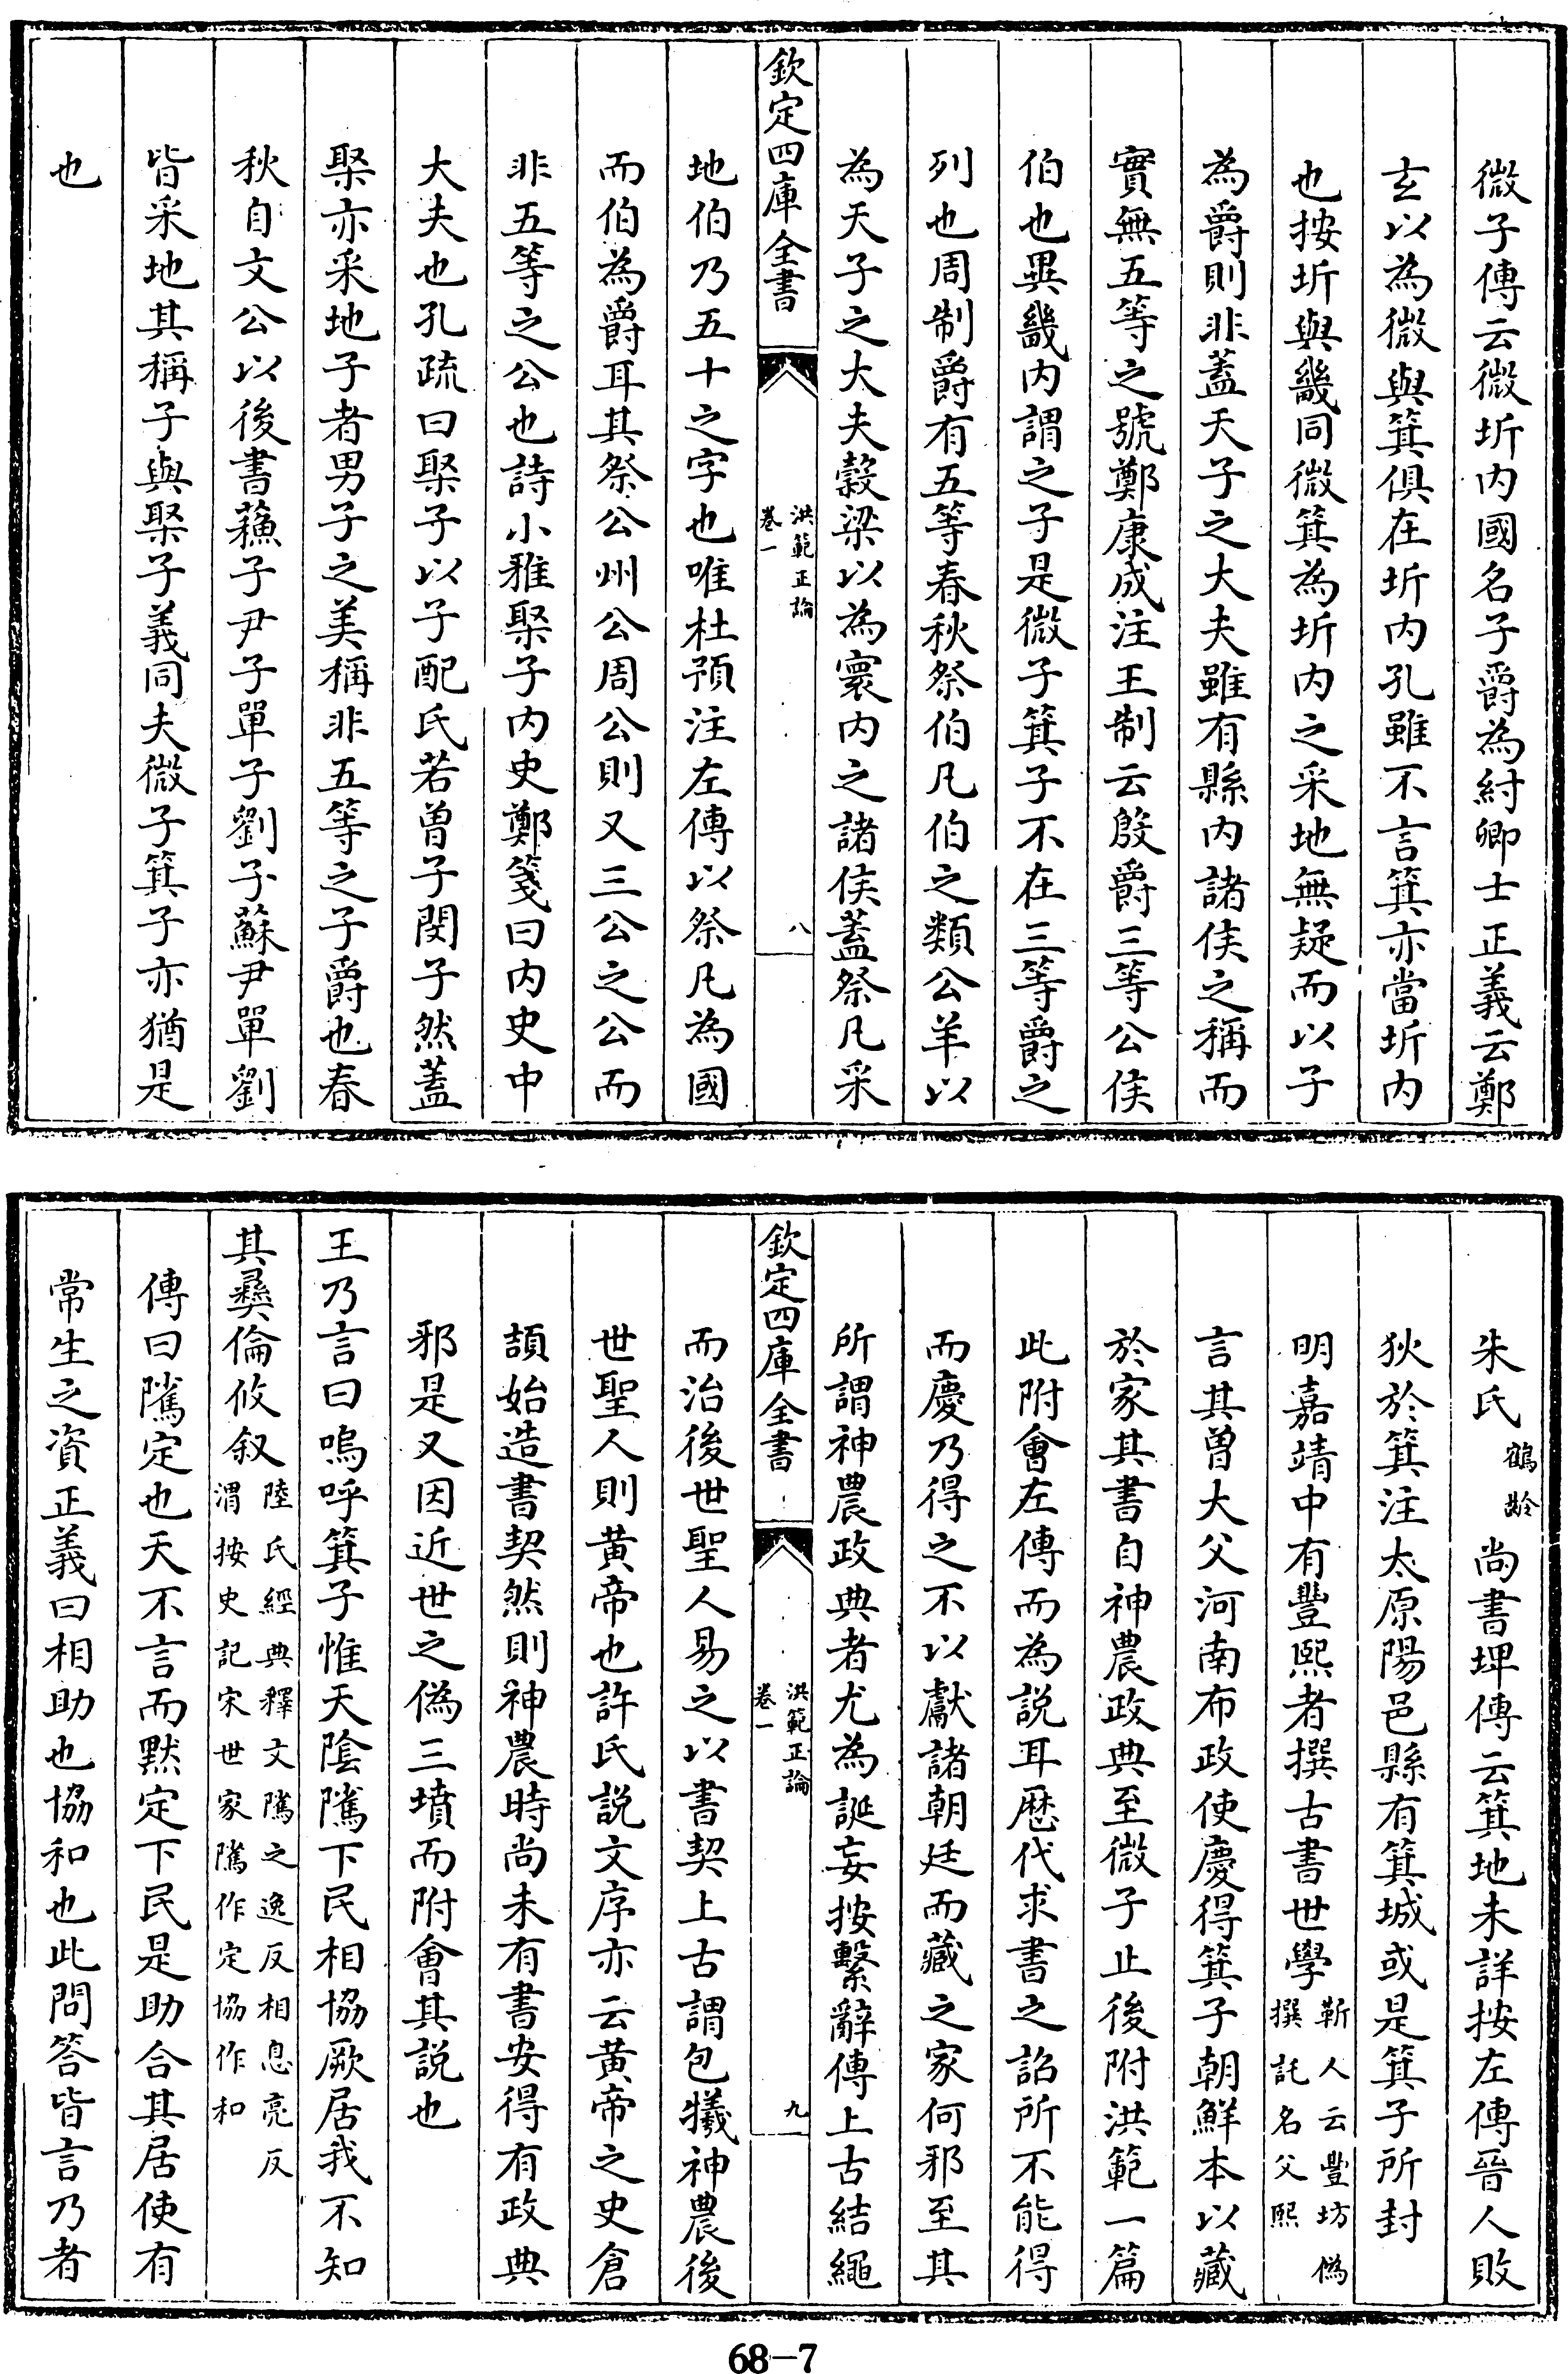 微子傳云微圻内國名子爵為紂卿士正義云鄭
玄以為微與箕俱在圻内孔雖不言箕亦當圻内
也按圻與畿同微箕為圻内之采地無疑而以子
為爵則非蓋天子之大夫雖有縣内諸侯之稱而
實無五等之號鄭康成注王制云殷爵三等公侯
伯也異畿内謂之子是微子箕子不在三等爵之
列也周制爵有五等春秋祭伯凡伯之類公羊以
為天子之大夫穀梁以為寰内之諸侯蓋祭凡采
欽定四庫全書
洪範正論
卷一
八
地伯乃五十之字也唯杜預注左傳以祭凡為國
而伯為爵耳其祭公州公周公則又三公之公而
非五等之公也詩小雅棸子内史鄭箋曰内史中
大夫也孔疏曰棸子以子配氏若曾子閔子然蓋
棸亦采地子者男子之美稱非五等之子爵也春
秋自文公以後書蘓子尹子單子劉子蘇尹單劉
皆采地其稱子與棸子義同夫微子箕子亦猶是
也
朱氏鶴齡尚書埤傳云箕地未詳按左傳晉人敗
狄於箕注太原陽邑縣有箕城或是箕子所封
明嘉靖中有豐熙者撰古書世學靳人云豐坊偽撰託名父熙
言其曾大父河南布政使慶得箕子朝鮮本以藏
於家其書自神農政典至微子止後附洪範一篇
此附會左傳而為説耳歴代求書之詔所不能得
而慶乃得之不以獻諸朝廷而藏之家何邪至其
所謂神農政典者尤為誕妄按繫辭傳上古結繩
欽定四庫全書
洪範正論
卷一
九
而治後世聖人易之以書契上古謂包犧神農後
世聖人則黄帝也許氏説文序亦云黄帝之史倉
頡始造書契然則神農時尚未有書安得有政典
邪是又因近世之偽三墳而附會其説也
王乃言曰嗚呼箕子惟天陰騭下民相協厥居我不知
其彞倫攸叙陸氏經典釋文騭之逸反相息亮反渭按史記宋世家騭作定協作和
傳曰騭定也天不言而黙定下民是助合其居使有
常生之資正義曰相助也協和也此問答皆言乃者
68-7